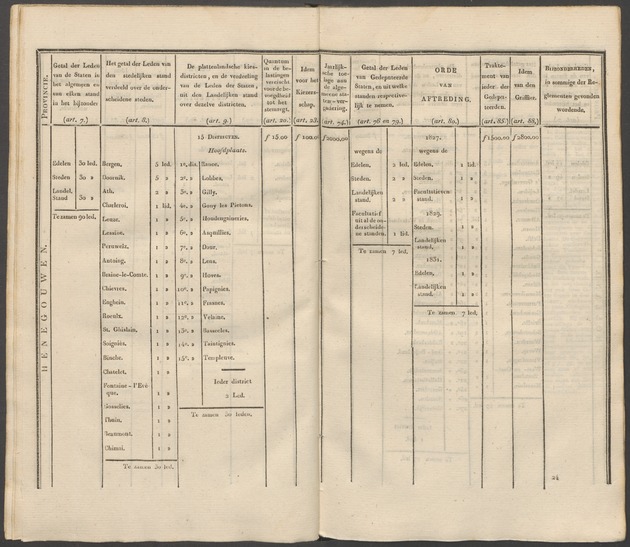 PROVINCIE.
HENEGOUWEN.
Getal der Leden
van de Staten in
het algemeen en
van elken stand
in het bijzonder
(art. 7.)
Edelen 30 led.
Steden 30 »
Landel.
Stand 30 »
Te zamen 90 led.
Het getal der Leden van
den stedelijken stand
verdeeld over de onder-
scheidene steden.
(art. 8.)
Bergen, 5 led.
Doornik, 5 »
Ath, 2 »
Charleroi, 1 lid.
Leuze, 1 »
Lessine, 1 »
Peruwelz, 1 »
Antoing, 1 »
Braine-le-Comte, 1 »
Chievres, 1 »
Enghein, 1 »
Roeulx, 1 »
St. Ghislain, 1 »
Soignies, 1 »
Binche, 1 »
Chatelet, 1 »
Fontaine-l'Evê-
que, 1 »
Gosselies, 1 »
Thuin, 1 »
Beaumont, 1 »
Chimai, 1 »
Te zamen 30 led.
De plattenlandsche kies-
districten, en de verdeeling
van de Leden der Staten,
uit den Landelijken stand
over dezelve districten.
(art. 9.)
15 DISTRICTEN.
Hoofdplaats.
1e. dis.
2e. » Lobbes.
3e. » Gilly.
4e. » Gouy les Pietons.
5e. » Houdengnieries.
6e. »
7e. » Dour.
8e. » Lens.
9e. » Hoves.
10e. » Papignies.
11e. » Frasnes.
12e. » Velaine,
13e. » Basecles.
14e. » Taintignies.
15e. » Templeuve.
Ieder district
2 Led.
Te zamen 30 leden.
Quantum
in de be-
lastingen
vereischt
voor de be-
voegdheid
tot het
stemregt.
(art. 20.)
f 15.00
Idem
voor het
Kiezer-
schap.
(art. 23.)
f 100.00
Jaarlijk-
sche toe-
lage aan
de alge-
meene sta-
ten-ver-
gadering.
(art. 74.)
f 2000.00
Getal der Leden
van Gedeputeerde
Staten, en uit welke
standen respective-
lijk te nemen.
(art. 78 en 79.)
wegens de
Edelen, 2 led.
Steden, 2 »
Landelijken
stand. 2 »
Facultatief
uit al de on-
derscheide-
ne standen. 1 lid.
Te zamen 7 led.
ORDE
VAN
AFTREDING.
(art. 80.)
1827.
wegens de
Edelen, 1 lid.
Steden, 1 »
Facultatieven
stand. 1 »
1829.
Steden, 1 »
Landelijken
stand, 1 »
1831.
Edelen, 1 »
Landelijken
stand. 1 »
Te zamen 7 led.
Trakte-
ment van
ieder der
Gedepu-
teerden.
(art. 85.)
f 1500.00
Idem
van den
Griffier.
(art. 88.)
f 2800.00
BIJZONDERHEDEN,
in sommige der Re-
glementen gevonden
wordende.
24